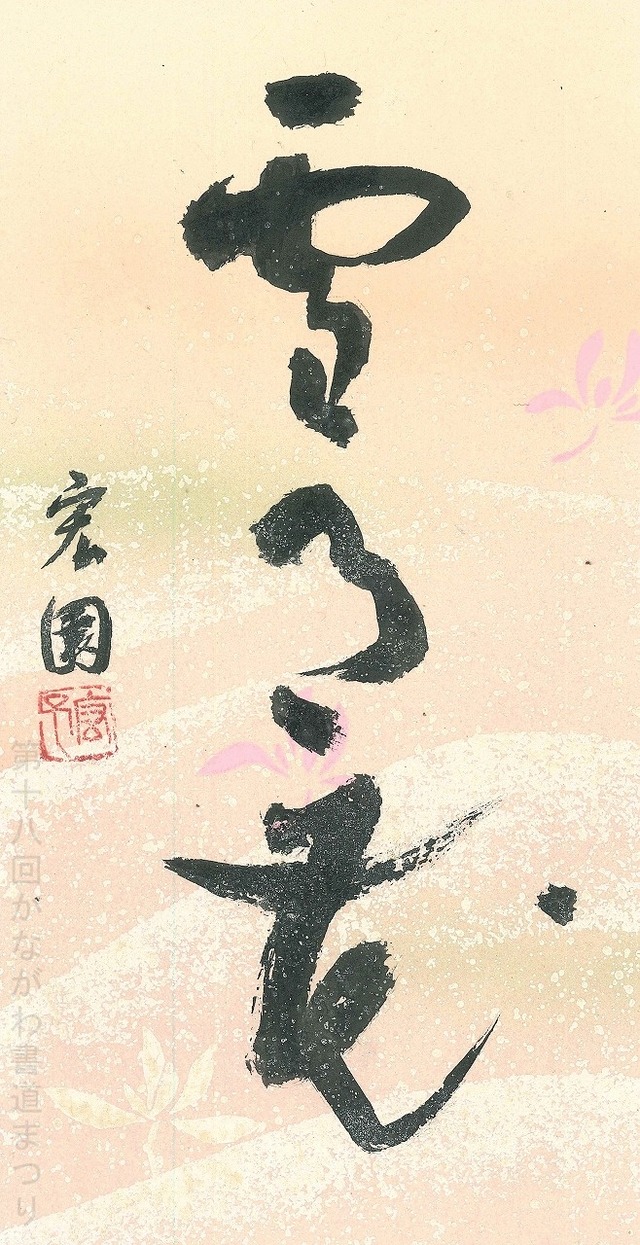 雪月花
宏園
第十八回かながわ書道まつり